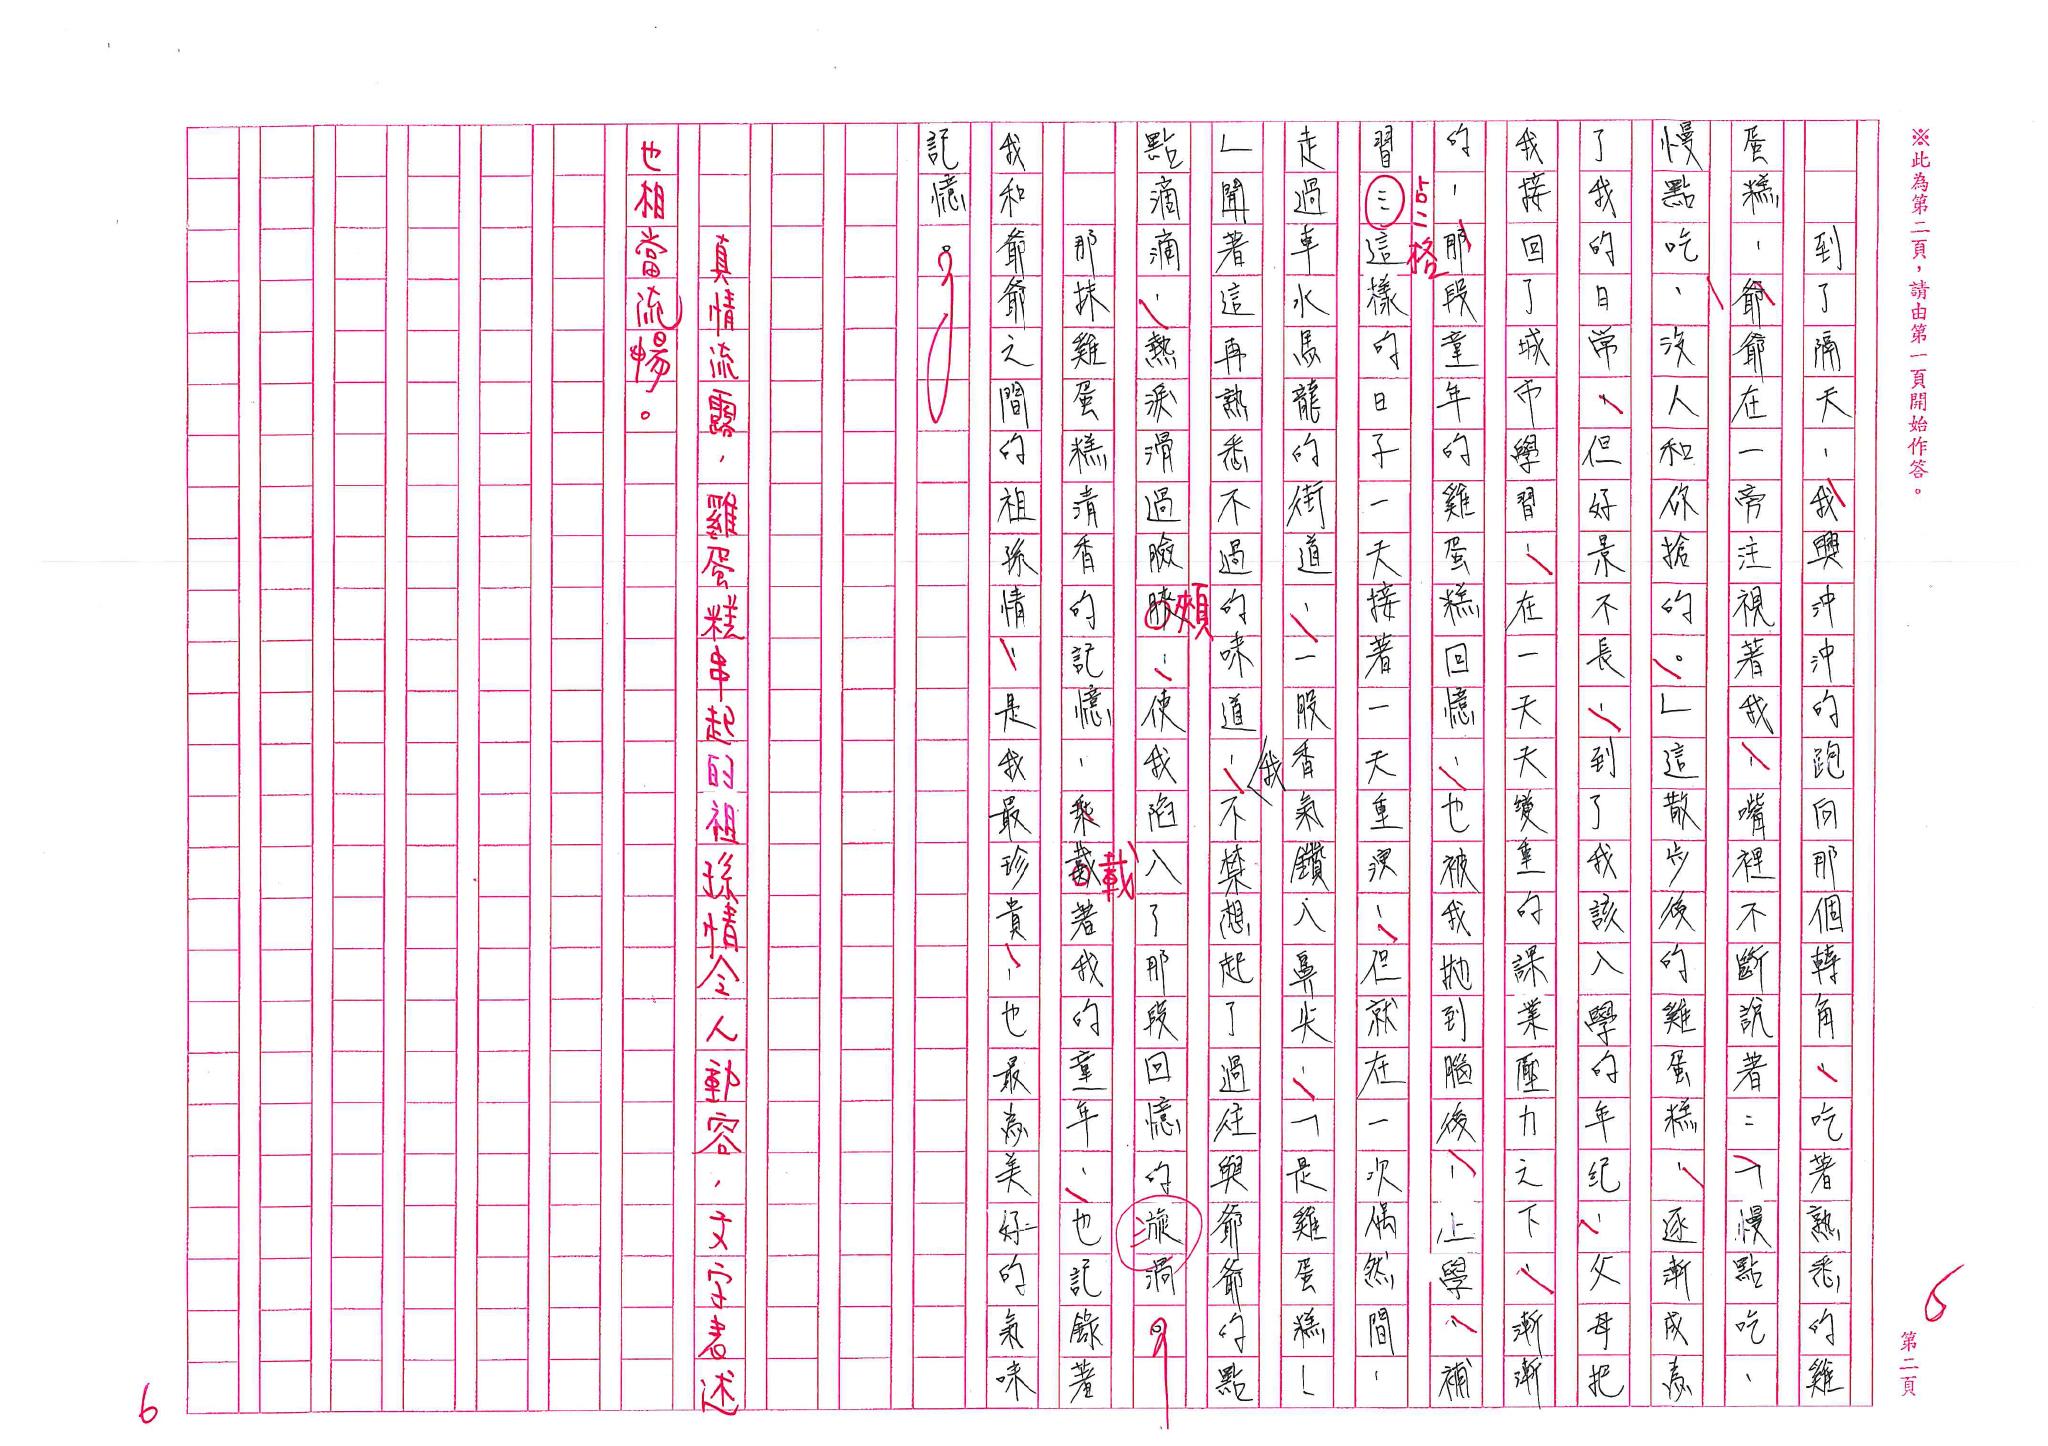 ※此為第二頁，請由第一頁開始作答。
第二頁
5
到了隔天，我興沖沖的跑向那個轉角，吃著熟悉的雞
蛋糕，爺爺在一旁注視著我，嘴裡不斷說著：「慢點吃，
慢點吃，沒人和你搶的。」這散步後的雞蛋糕，逐漸成為
了我的日常，但好景不長，到了我該入學的年紀，父母把
我接回了城市學習，在一天天變重的課業壓力之下，漸漸
的，那段童年的雞蛋糕回憶，也被我拋到腦後，上學，補
占二格
習⋯這樣的日子一天接著一天重演，但就在一次偶然間，
走過車水馬龍的街道，一股香氣鑽入鼻尖，「是雞蛋糕！
我
」聞著這再熟悉不過的味道，不禁想起了過往與爺爺的點
點滴滴，熱淚滑過臉，使我陷入了那段回憶的漩渦。
頰
那抹雞蛋糕清香的記憶，乘載著我的童年，也記錄著
載
我和爺爺之間的祖孫情，是我最珍貴，也最為美好的氣味
記憶。
真情流露，雞蛋糕串起的祖孫情令人動容，文字表述
也相當流暢。
6